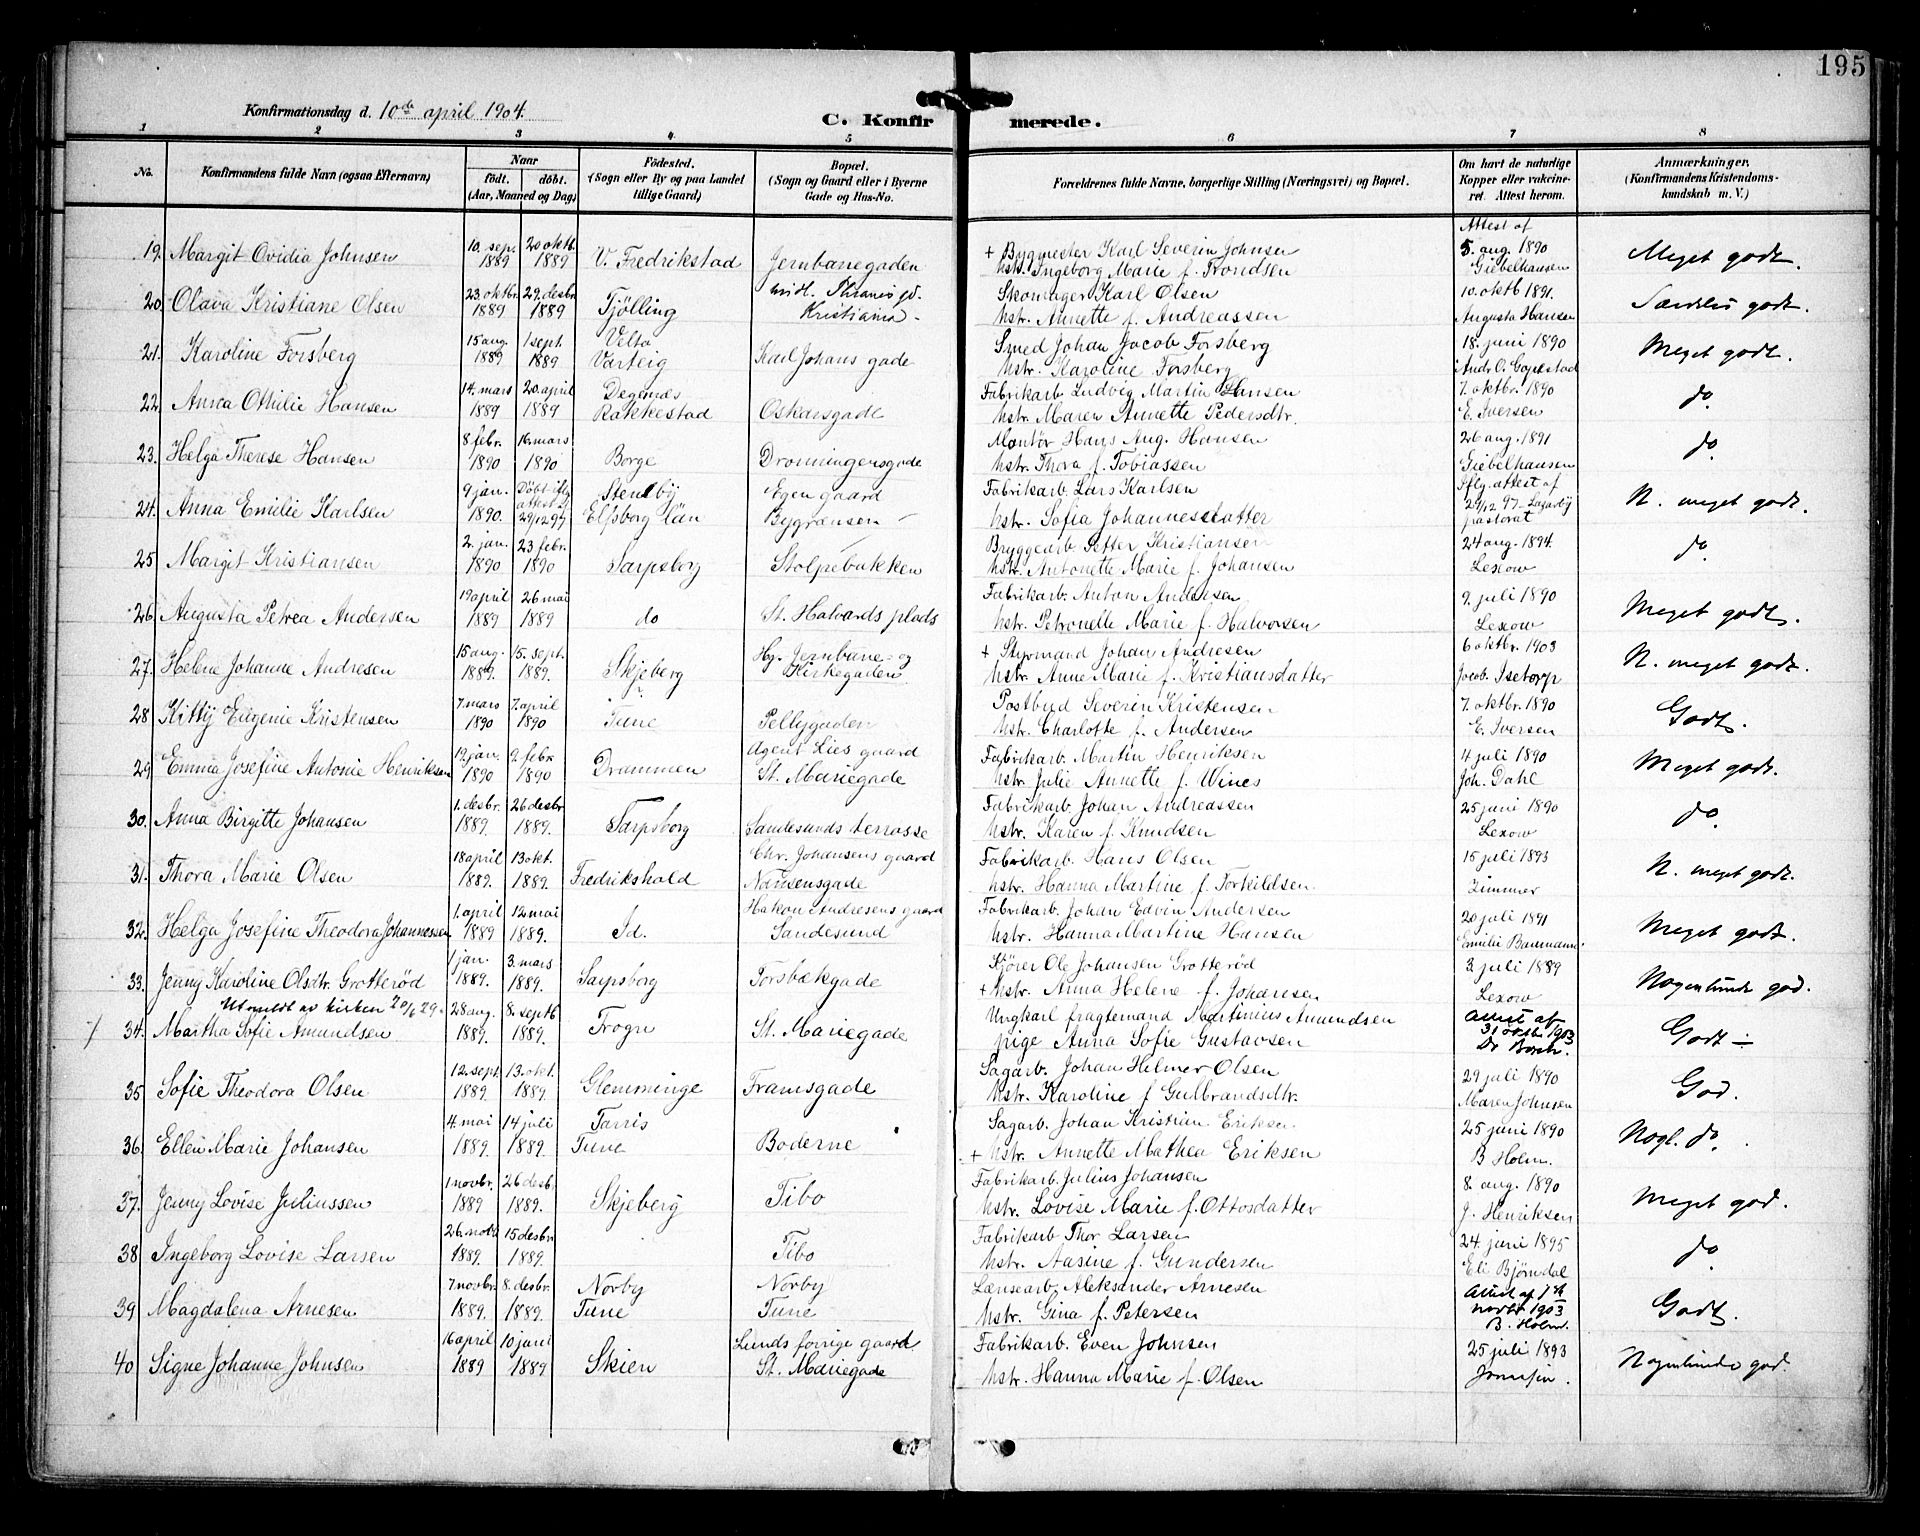 195
Konfirmationsdag d. 10de april 1904.
C. Konfirmerede.
1 2 3 4 5 6 7 8
No. Konfirmandens fulde Navn (ogsaa Efternavn) Naar födt. döbt. (Aar, Maaned og Dag) Födested. (Sogn eller By og paa Landet tillige Gaard) Bopæl. (Sogn og Gaard eller i Byerne Gade og Hus-No. Forældrenes fulde Navne, borgerlige Stilling (Næringsvei) og Bopæl. Om havt de naturlige Kopper eller vakcineret. Attest herom. Anmærkninger. (Konfirmandens Kristendomskundskab m. V.)
19. Margit Ovidia Johnsen 10. sep. 1889 20 oktb. 1889 V. Fredrikstad Jernbanegaden + Bygmester Karl Severin Johnsen Hstr. Ingeborg Marie f. Trondsen Attest af 5. aug. 1890 Giebelhausen Meget godt.
20. Olava Kristiane Olsen 23. oktbr. 1889 29. desbr. 1889 Tjölling Kristiania - Skomager Karl Olsen Hstr. Annette f. Andreassen 10. oktb 1891. Augusta Hansen Særdeles godt.
21. Karoline Forsberg 15 aug. 1889 1 sept. 1889 Velta Varteig Karl Johans gade Smed Johan Jacob Forsberg Hstr. Karoline Forsberg 18. juni 1890 Meget godt.
22. Anna Othilie Hansen 14. mars 1889 20. april 1889 Degernes Rakkestad Oskarsgade Fabrikarb. Ludvig Martin Hansen Hstr. Maren Annette Pedersdtr. 7. oktbr. 1890 E. Iversen do
23. Helga Therese Hansen 8 febr. 1890 16. mars 1890 Borge Dronningensgade Montör Hans Aug. Hansen Hstr. Thora f. Tobiassen 26 aug. 1891 Giebelhausen do
24. Anna Emilie Karlsen 9 jan. 1890. Döbt iflg attest af 29/12 97 Stenbÿ Elfsborg län Egen gaard Bygrænsen Fabrikarb. Lars Karlsen Hstr. Sofia Johannesdatter Iflg. attest af 29/12 97 pastorat N. meget godt.
25 Margit Kristiansen 2. jan. 1890 23 febr. 1890 Sarpsborg Stolpebakken Bryggearb. Petter Kristiansen Hstr. Antonette Marie f. Johansen 24 aug. 1894. Lexow do
26 Augusta Petrea Andersen 19 april 1889 26 mai 1889 do St. Halvards plads Fabrikarb. Anton Andersen Hstr. Petronelle Marie f. Halvorsen 9. juli 1890 Lexow Meget godt.
27. Helene Johanne Andresen 15 aug. 1889. 15. sept. 1889. Skjeberg Hj. Jernbane- og Kirkegaden + Styrmand Johan Andresen Hstr. Anne Marie f. Kristiansdatter 6 oktbr. 1903 Jacob Isetorp N. meget godt.
28 Kitty Eugenie Kristensen 7. mars 1890 7. april 1890 Tune Pellygaden Postbud Severin Kristensen Hstr. Charlotte f. Andersen 7. oktbr. 1890 E. Iversen Godt.
29 Emma Josefine Antonie Henriksen 19. jan. 1890 9. febr 1890 Drammen Agent Lies gaard St. Mariegade Fabrikarb. Martin Henriksen Hstr. Julie Annette f. Wines 4 juli 1890 Joh. Dahl Meget godt.
30. Anna Birgitte Johansen 1. desbr. 1889. 26 desbr 1889. Sarpsborg Sandesunds terrasse Fabrikarb. Johan Andreassen Hstr. Karen f. Knudsen 25 juni 1890 Lexow do
31. Thora Marie Olsen 18 april 1889. 13 okt. 1889. Fredrikshald Chr. Johansens gaard Nansensgade Fabrikarb. Hans Olsen Hstr. Hanna Martine f. Torkildsen 15 juli 1893 Zimmer N. meget godt.
32. Helga Josefine Theodora Johannessen 1. april 1889 12 mai 1889. Id. Hakon Andresens gaard Sandesund Fabrikarb. Johan Edvin Andersen Hstr. Hanna Martine Hansen 20 juli 1891 Emilie Baumann Meget godt.
33. Jenny Karoline Olsdtr. Grotteröd 1 jan. 1889. 3. mars 1889. Sarpsborg Torsbækgade Kjörer Ole Johansen Grotteröd + Hstr. Anna Helene f. Johansen 3. juli 1889 Lexow Nogenlunde god.
Utmeldt av kirken 20/6 29.
34. Martha Sofie Amundsen 28 aug. 1889. 8. septb 1889. Trogn St. Mariegade Ungkarl fragtemand Martinius Amundsen pige Anna Sofie Gustavsen Attest af 31 oktbr 1903 Dr Borch. Godt -
35 Sofie Theodora Olsen 12. sept. 1889 13. okt. 1889. Glemminge Framsgade Sagarb. Johan Helmer Olsen Hstr. Karoline f Gulbrandsdtr. 29 juli 1890 Maren Johnsen God.
36. Ellen Marie Johansen 4. mai 1889 14 juli 1889. Tarris Tune Boderne Sagarb. Johan Kristian Eriksen. + Hstr. Annette Mathea Eriksen 25 juni 1890 B Holm. Nogl. do.
37. Jenny Lovise Juliussen 1 novbr. 1889 26 desb. 1889. Skjeberg Tibo Fabrikarb. Julius Johansen Hstr. Lovise Marie f. Ottosdatter 8. aug. 1890 J. Henriksen Meget god.
38 Ingeborg Lovise Larsen 26. novb 1889. 15 desbr 1889. Tibo Fabrikarb Thor Larsen Hstr. Aasine f. Gundersen 24. juni 1895 Eli Björndal do
39 Magdalena Arnesen 7 novbr. 1889. 8. desbr. 1889. Norby Tune Norby Tune Lænsearb. Aleksander Arnesen Hstr. Gina f. Petersen Attest af novbr 1903 B. Holm. Godt.
40 Signe Johanne Johnsen 16 april 1889 10 juni 1889 Skien Lunds forrige gaard St. Mariegade Fabrikarb. Even Johnsen Hstr. Hanna Marie f. Olsen 25 juli 1893 Nogenlunde god.